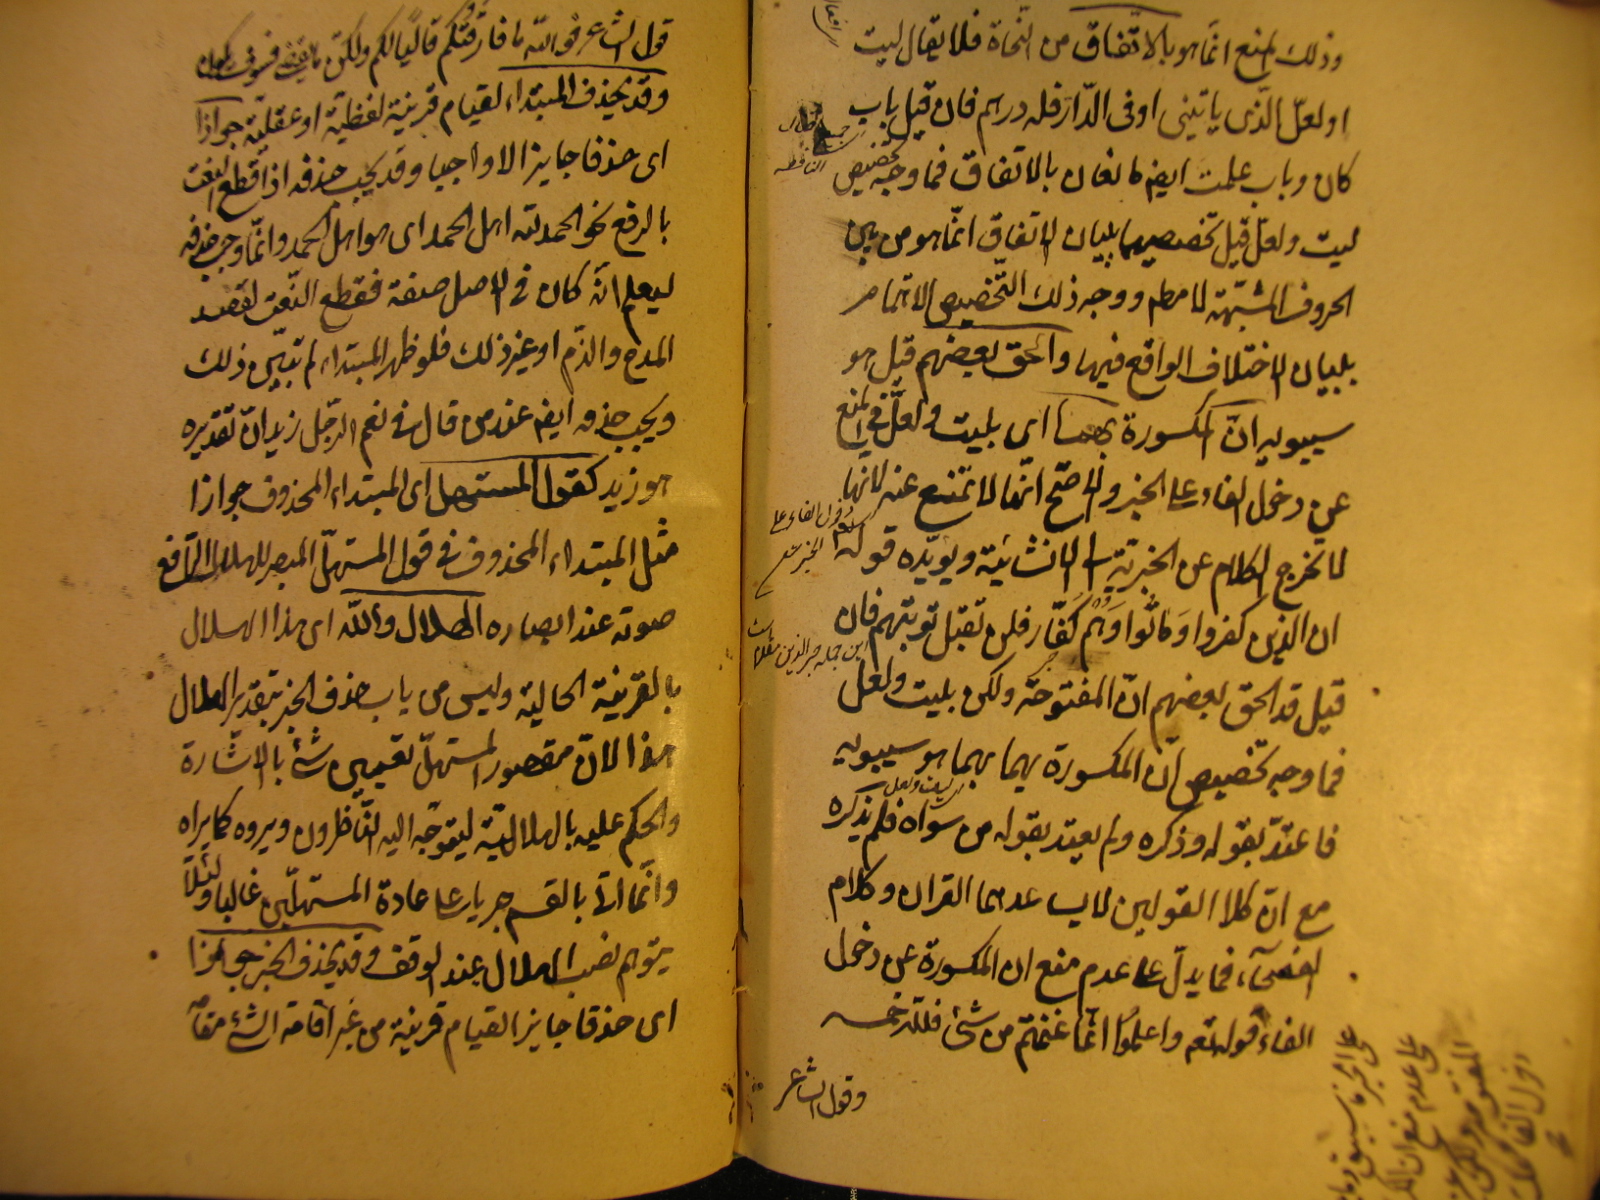 وذلك المنع انما هو بالاتفاق من النحاة فلا يقال ليت
او لعل الذى ياتينى او فى الدار فله درهم فان قيل باب
كان وباب علمت ايضا مانعان بالاتفاق فما وجه تخصيص
ليت ولعل قيل تخصيصهما ببيان الاتفاق انما هو من بين
الحروف المشبهة لا مطلقا ووجه ذلك التخصيص الاهتمام
ببيان الاختلاف الواقع فيها والحق بعضهم قيل هو
سيبويه ان المكسورة بهما اى بليت ولعل فى المنع
عن دخول الفاء على الخبر والاصح انها لا تمنع عنه لانها
لا تخرج الكلام عن الخبرية الى الانشائية ويؤيده قوله
ان الذين كفروا وماتوا وهم كفار فلن تقبل توبتهم فان
قيل قد الحق بعضهم ان المفتوحة ولكن بليت ولعل
فما وجه تخصيص ان المكسورة بهما
بهما هو سيبويه
فاعتد بقوله وذكره ولم يعتد بقوله من سواه فلم يذكره
مع ان كلا القولين لا يساعدهما القران وكلام
الفصحاء فما يدل على عدم منع ان المكسورة عن دخول
الفاء قوله تعم واعلموا انما غنمتم من شئ فلله خمسه
وقول الشاعر
دخول الفاء على الخبر
قول الشاعر فوالله ما فارقتكم قاليا لكم ولكن ما يقضى فسوف يكون
وقد يحذف المبتداء لقيام قرينة لفظية او عقلية جوازا
اى حذفا جايزا لا واجبا وقد يجب حذفه اذا قطع النعت
بالرفع نحو الحمد لله اهل الحمد اى هو اهل الحمد وانما وجب حذفه
ليعلم انه كان فى الاصل صفة فقطع النعت لقصد
المدح والذم او غير ذلك فلو ظهر المبتداء لم تبين ذلك
ويجب حذفه ايضا عند من قال فى نعم الرجل زيد ان تقديره
هو زيد كقول المستهل اى المبتداء المحذوف جوازا
مثل المبتداء المحذوف فى قول المستهل المبصر للهلال الرافع
صوته عند ابصاره الهلال والله اى هذا الهلال
بالقرينة الحالية وليس من باب حذف الخبر بتقدير الهلال
هذا لان مقصود المستهل تعيين شئ بالاشارة
والحكم عليه بالهلالية ليتوجه اليه الناظرون ويروه كما يراه
وانما اتى بالقسم جريا على عادة المستهلين غالبا ولئلا
يتوهم نصب الهلال عند الوقف وقد يحذف الخبر جوازا
اى حذفا جايزا لقيام قرينة من غير اقامة الشئ مقامه